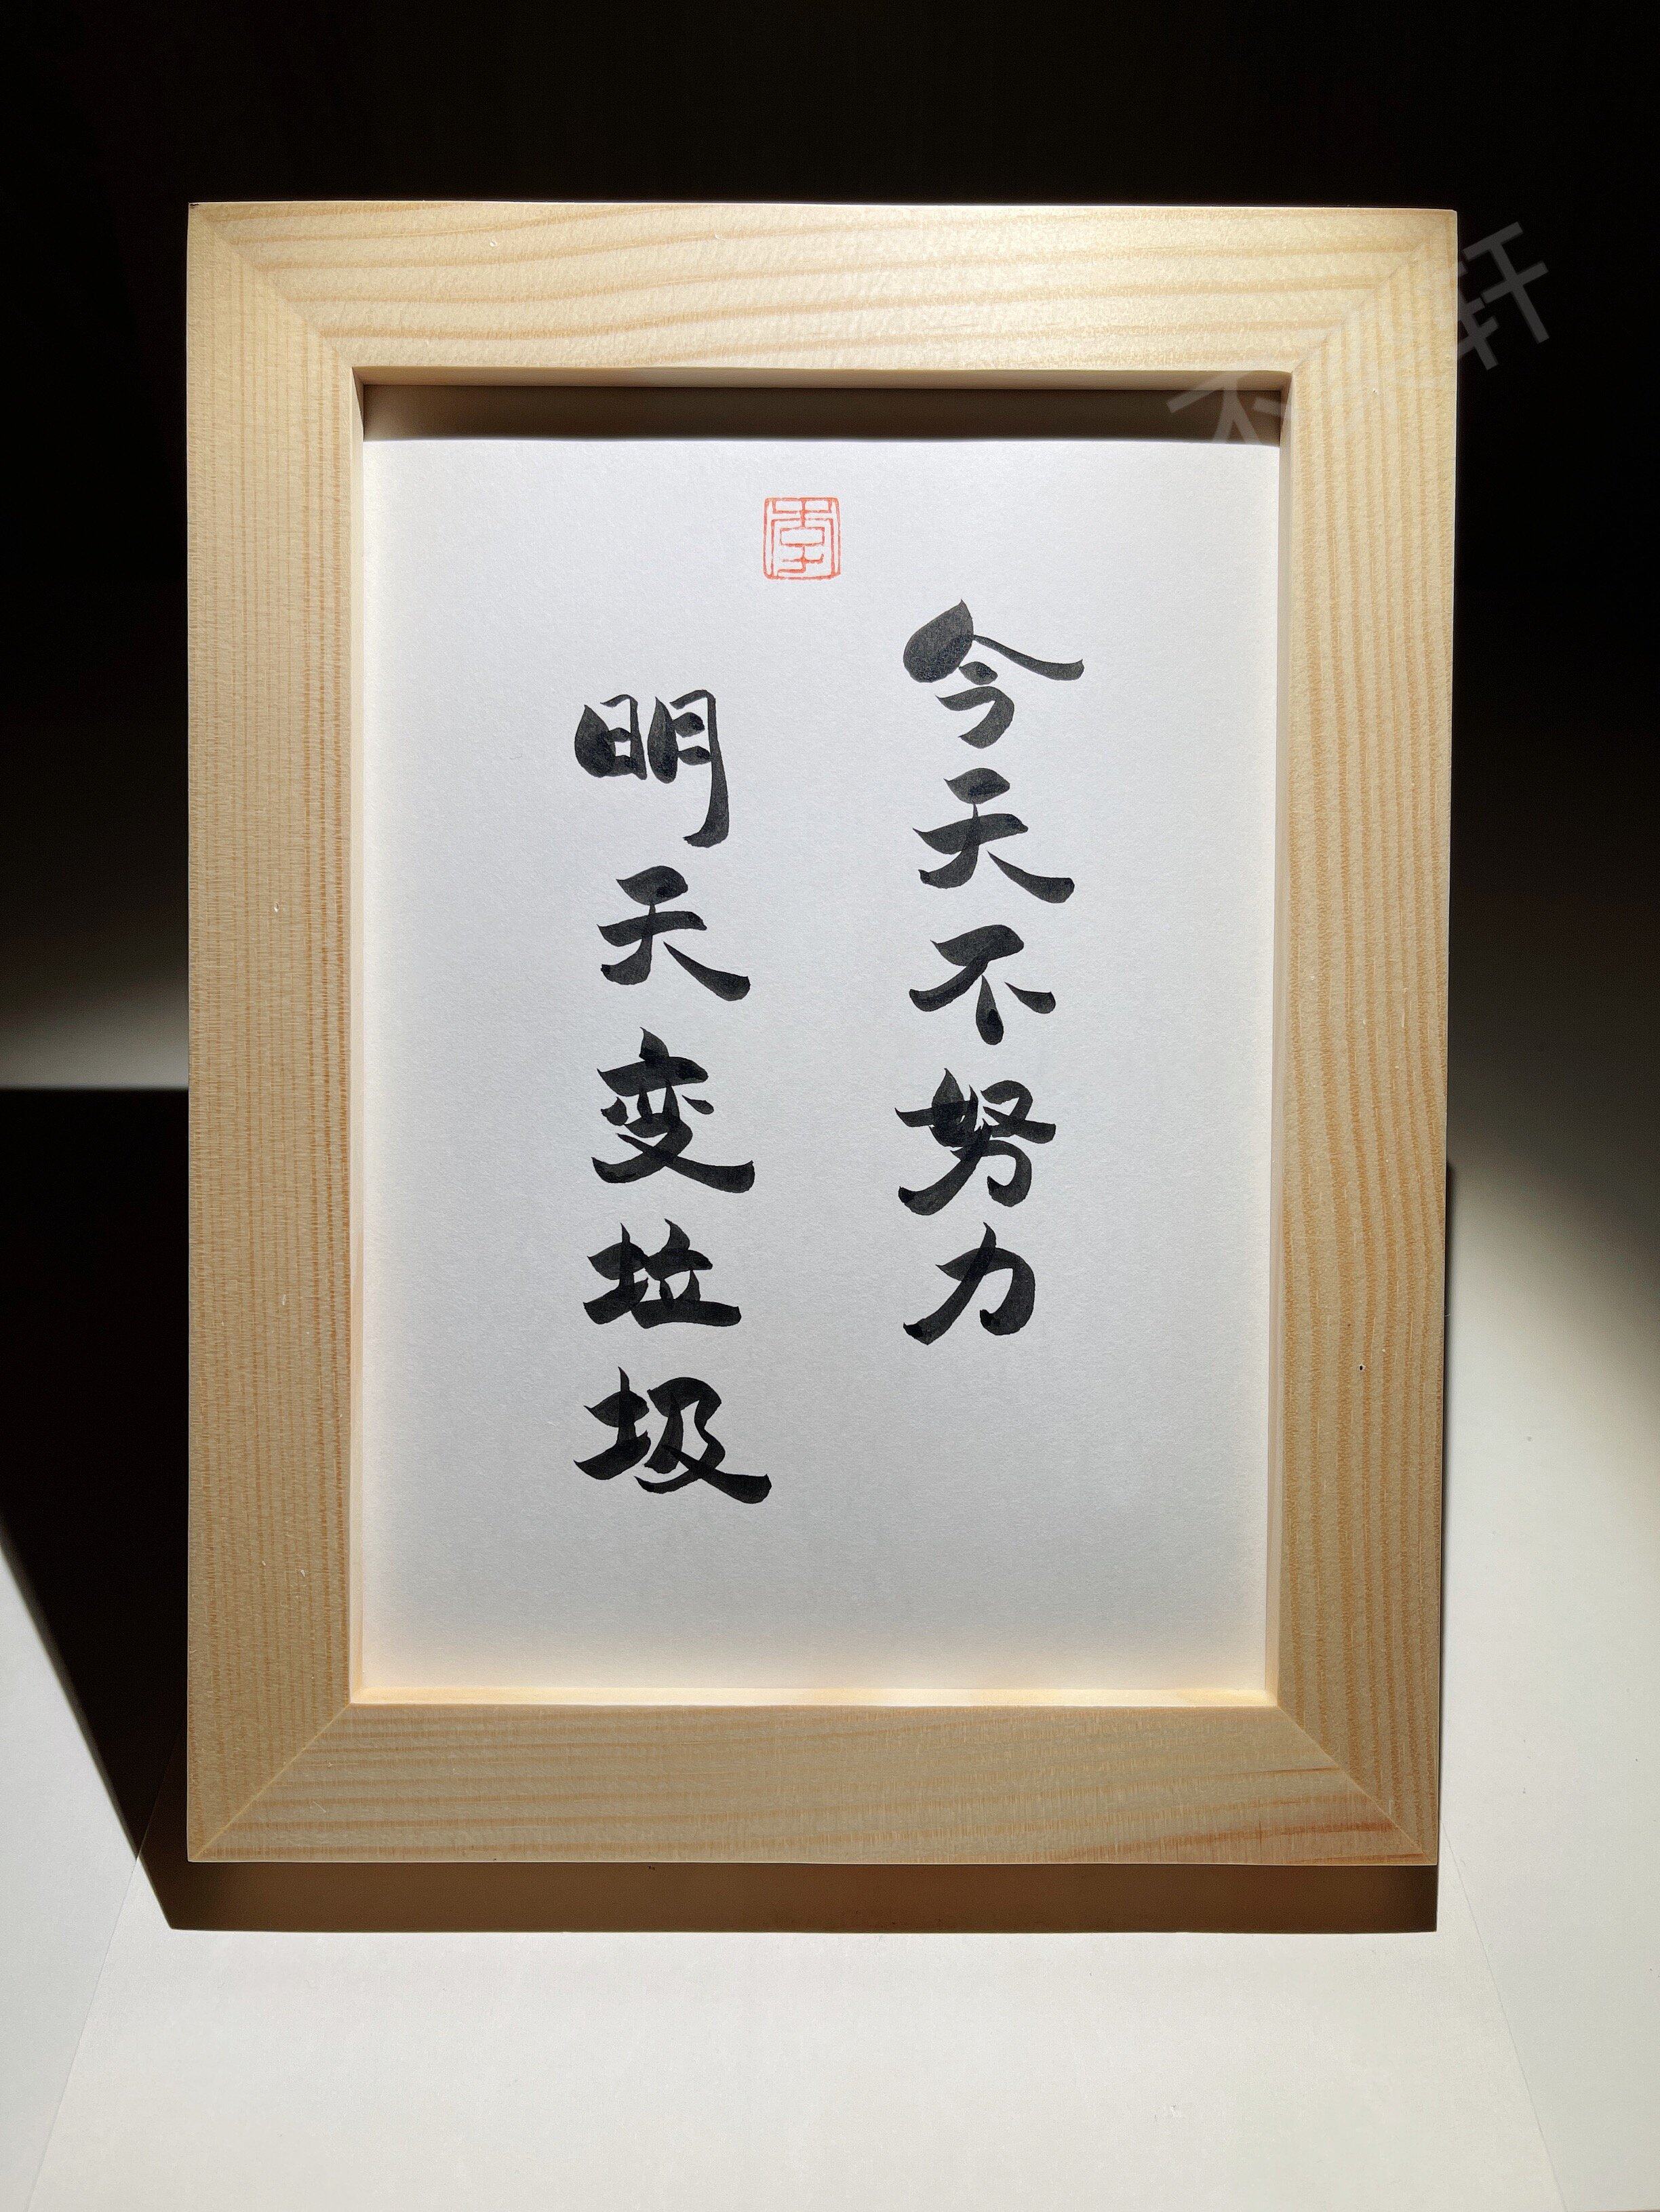 今天不努力
明天变垃圾